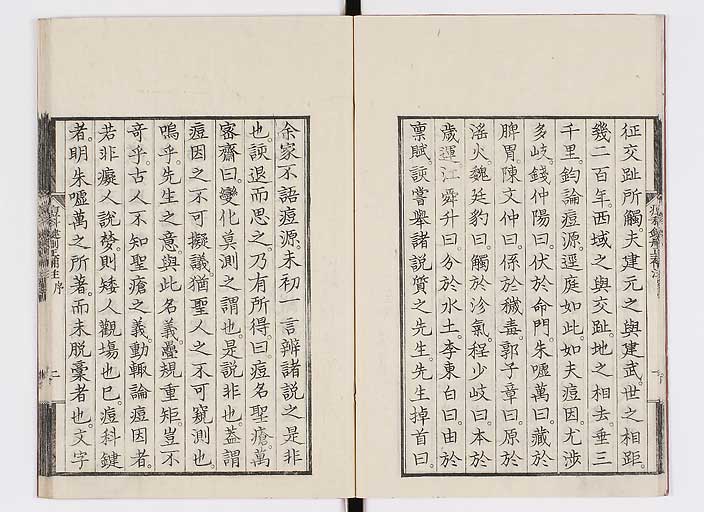 征交趾所觸。夫建元之與建武。世之相距。
幾二百年。西域之與交趾。地之相去。垂三
千里。鈞論痘源。逕庭如此。如夫痘因。尤涉
多岐。錢仲陽曰。伏於命門。朱嚏萬曰。藏於
脾胃。陳文仲曰。係於穢毒。郭子章曰。原於
滛火。魏廷豹曰。觸於沴氣。程少岐曰。本於
歲運。江舜升曰。分於水土。李東白曰。由於
禀賦。諛嘗舉諸說質之先生。先生掉首曰。
余家不語痘源。未初一言辨諸說之是非
也。諛退而思之。乃有所得。曰痘名聖瘡。萬
密齋曰。變化莫測之謂也。是說非也。蓋謂
痘因之不可擬議。猶聖人之不可窺測也。
嗚乎。先生之意與此名義。疊規重矩。豈不
奇乎。古人不知聖瘡之義。動輙論痘因者。
若非癡人說夢。則矮人觀場也巳。痘科鍵
者。明朱嚏萬之所著。而未脫稾者也。文字
序
二